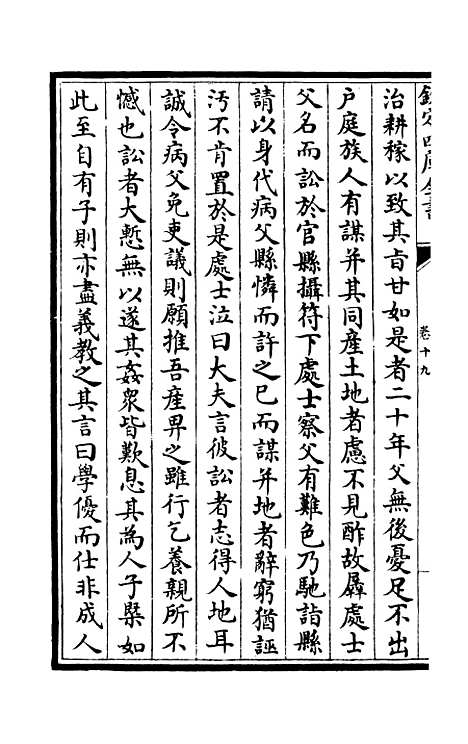 欽定四庫全書
卷十九
治耕稼以致其㫖甘如是者二十年父無後憂足不出
户庭族人有謀并其同産土地者慮不見酢故羼處士
父名而訟於官縣攝符下處士察父有難色乃馳詣縣
請以身代病父縣憐而許之已而謀并地者辭窮猶誣
汚不肯置於是處士泣曰大夫言彼訟者志得人地耳
誠令病父免吏議則願推吾産畀之雖行乞養親所不
憾也訟者大慙無以遂其姦衆皆歎息其為人子槩如
此至自有子則亦盡義教之其言曰學優而仕非成人